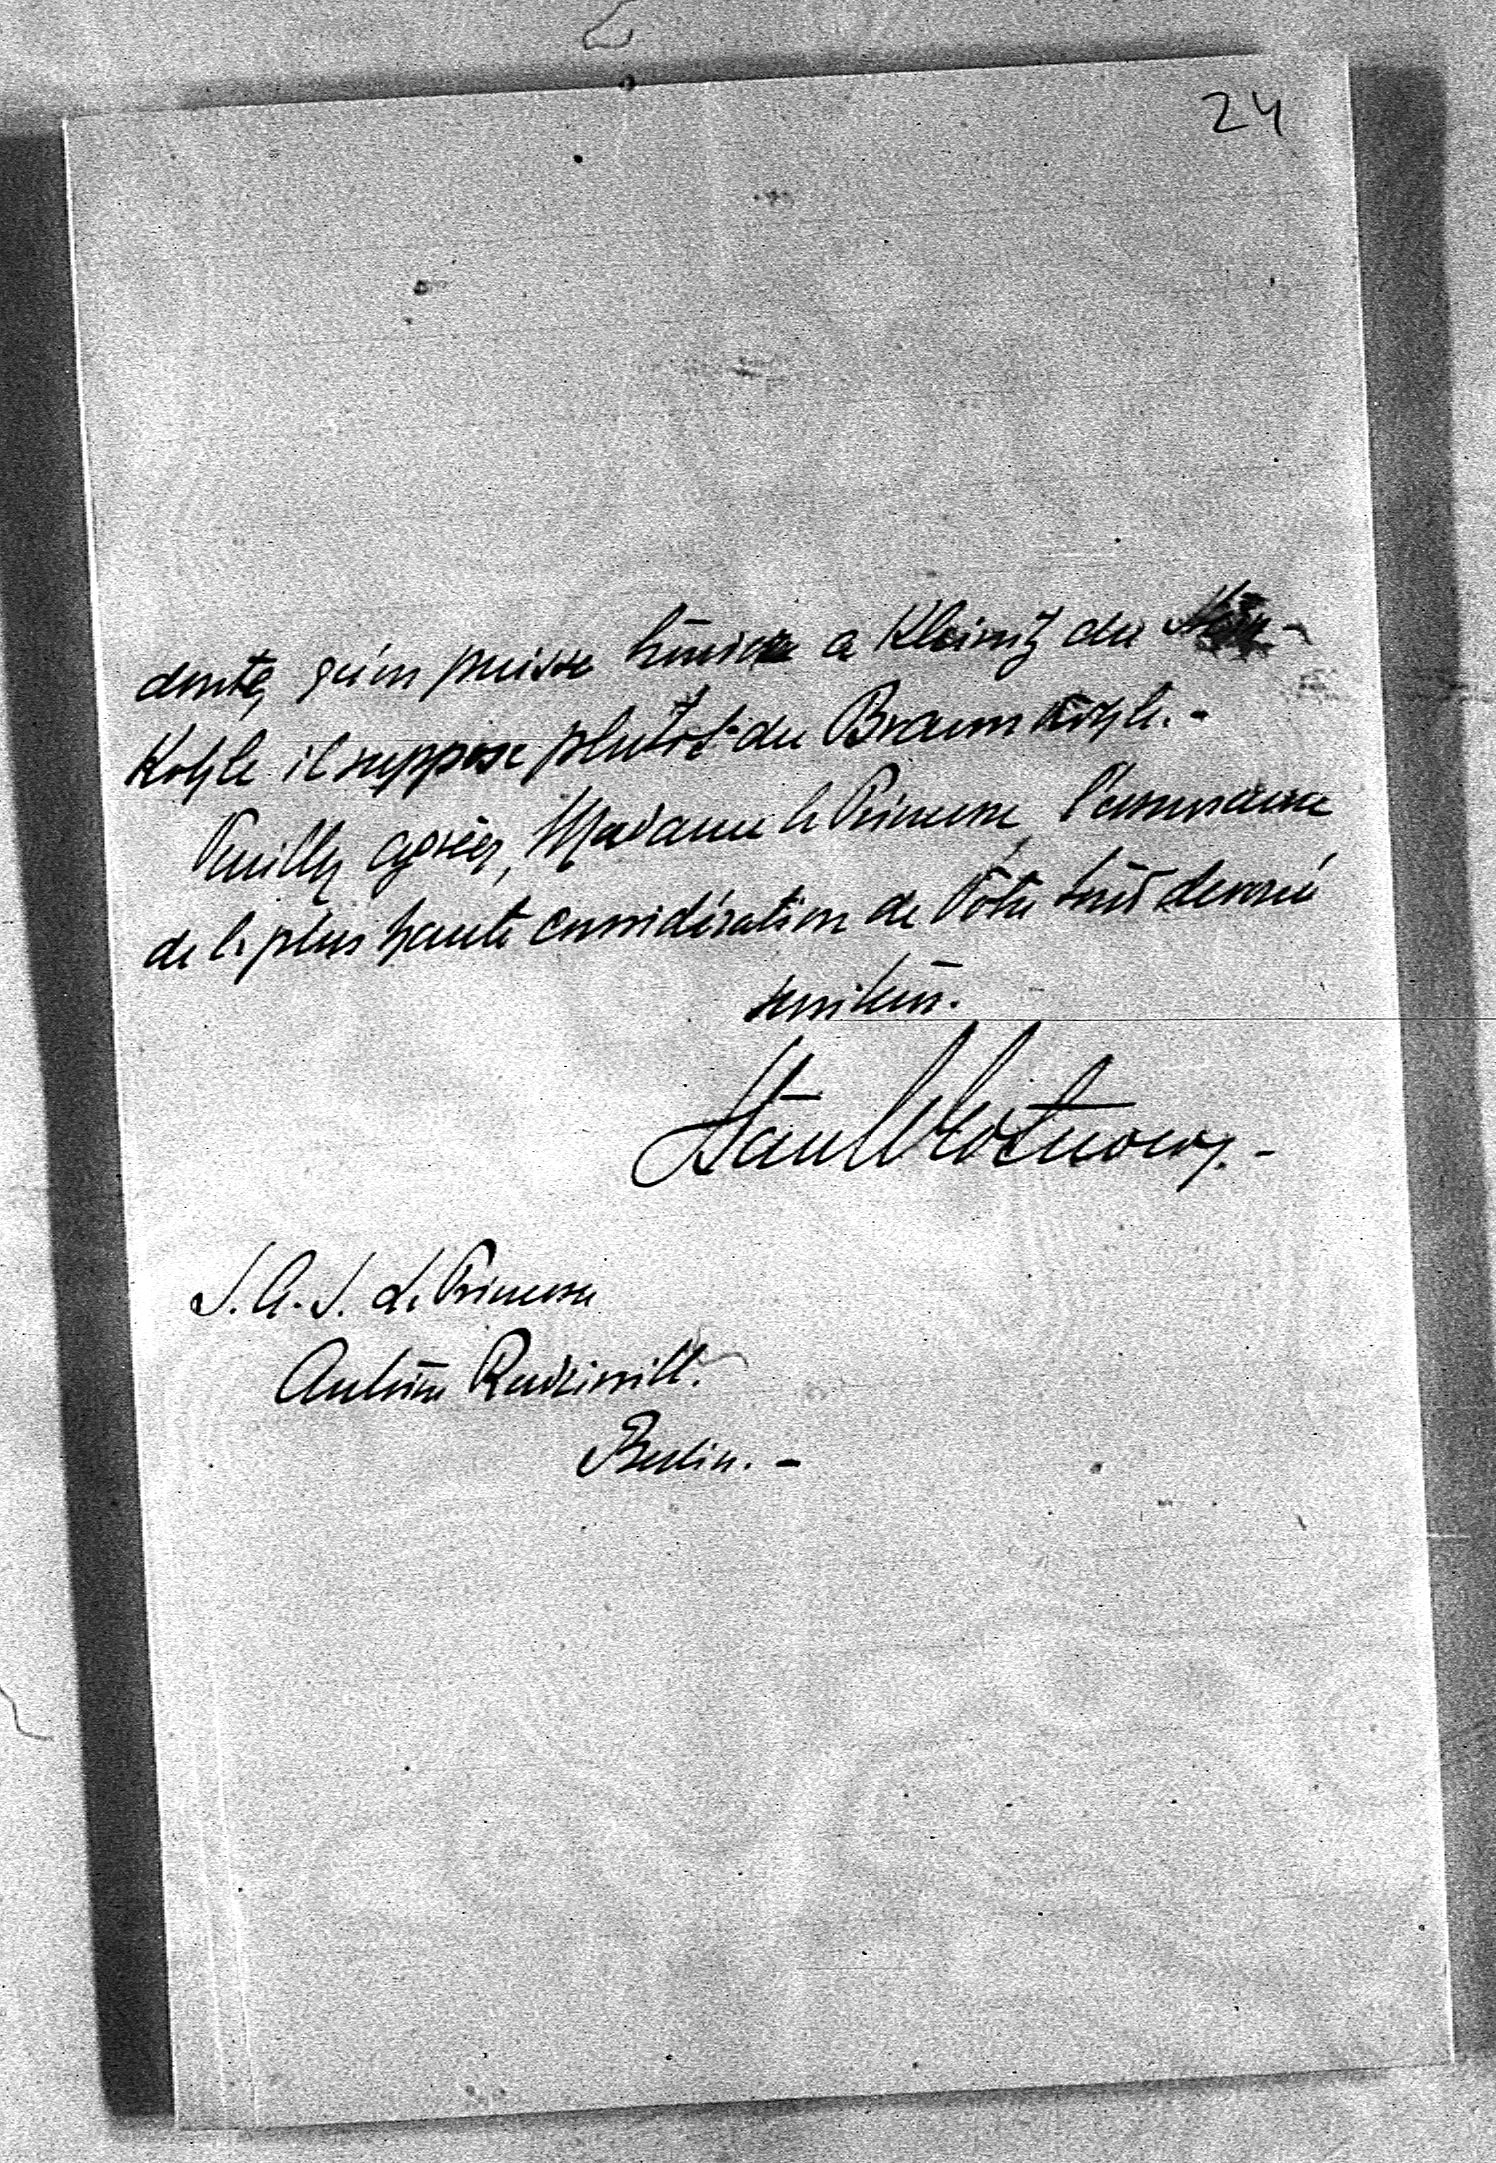 24
doute, qu'on puisse trouver a Kleinitz du
Kohle il suppose plutôt du Braunkohle. -
Veuillez agréer, Madame la Princesse, l'assurance
de la plus haute considération de Votre tout devoué
serviteur.
S. A. S. La Princesse
Antoine Radziwill.
Berlin. -